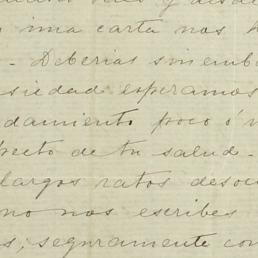 y desde
una carta nos h
. Deberías sin emb
siedad esperamos
damiento poco ó
pecto de tu salud.
largos ratos desocu
no nos escribes
s; seguramente con